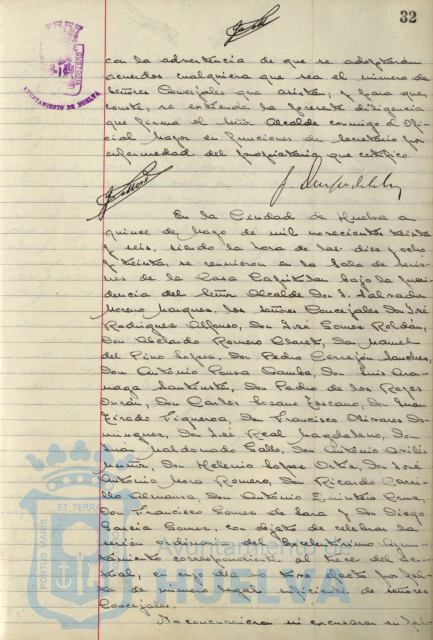 32
AYUNTAMIENTO DE HUELVA
CUSTODIA
con la advertencia de que se adoptarán
acuerdos cualquiera que sea el número de
Señores Concejales que asistan, y para que
conste, se extiende la presente diligencia
que firma el Señor Alcalde conmigo el Ofi-
cial Mayor en funciones de Secretario por
enfermedad del propietario, que certifico.
En la Ciudad de Huelva a
quince de Mayo de mil novecientos treinta
y seis, siendo la hora de las diez y ocho
y treinta, se reunieron en la Sala de Sesio-
nes de la Casa Capitular bajo la Presi-
dencia del Señor Alcalde Don Salvador
Moreno Marquez, los Señores Concejales Don José
Rodriguez Alfonso, Don José Gomez Roldán,
Don Abelardo Romero Claret, Don Manuel
del Pino Lopez, Don Pedro Cerrejón Sanchez,
Don Antonio Ponsa Don Luis
Don Pedro de los Reyes
Durán, Don Carlos Lozano Don Juan
Tirado Figueroa, Don Francisco Olivares Do-
minguez, Don José Real Magdaleno, Don
Juan Maldonado Gallo, Don Antonio
Muñoz, Don Helenio Lopez Don José
Antonio Mora Romero, Don Ricardo Carri-
llo Almansa, Don Antonio Quintero Cruz,
Don Francisco Gomez de Lara y Don Diego
Garcia Gomez, con objeto de celebrar la
sesión ordinaria del Excelentísimo Ayun-
tamiento correspondiente al trece del ac-
tual, en cuyo dia no tuvo efecto por fal-
ta de número legal suficiente de señores
Concejales.
No concurrieron ni excusaron su
PORTUS MARIS ET TERRAE
Ayuntamiento de
HUELVA